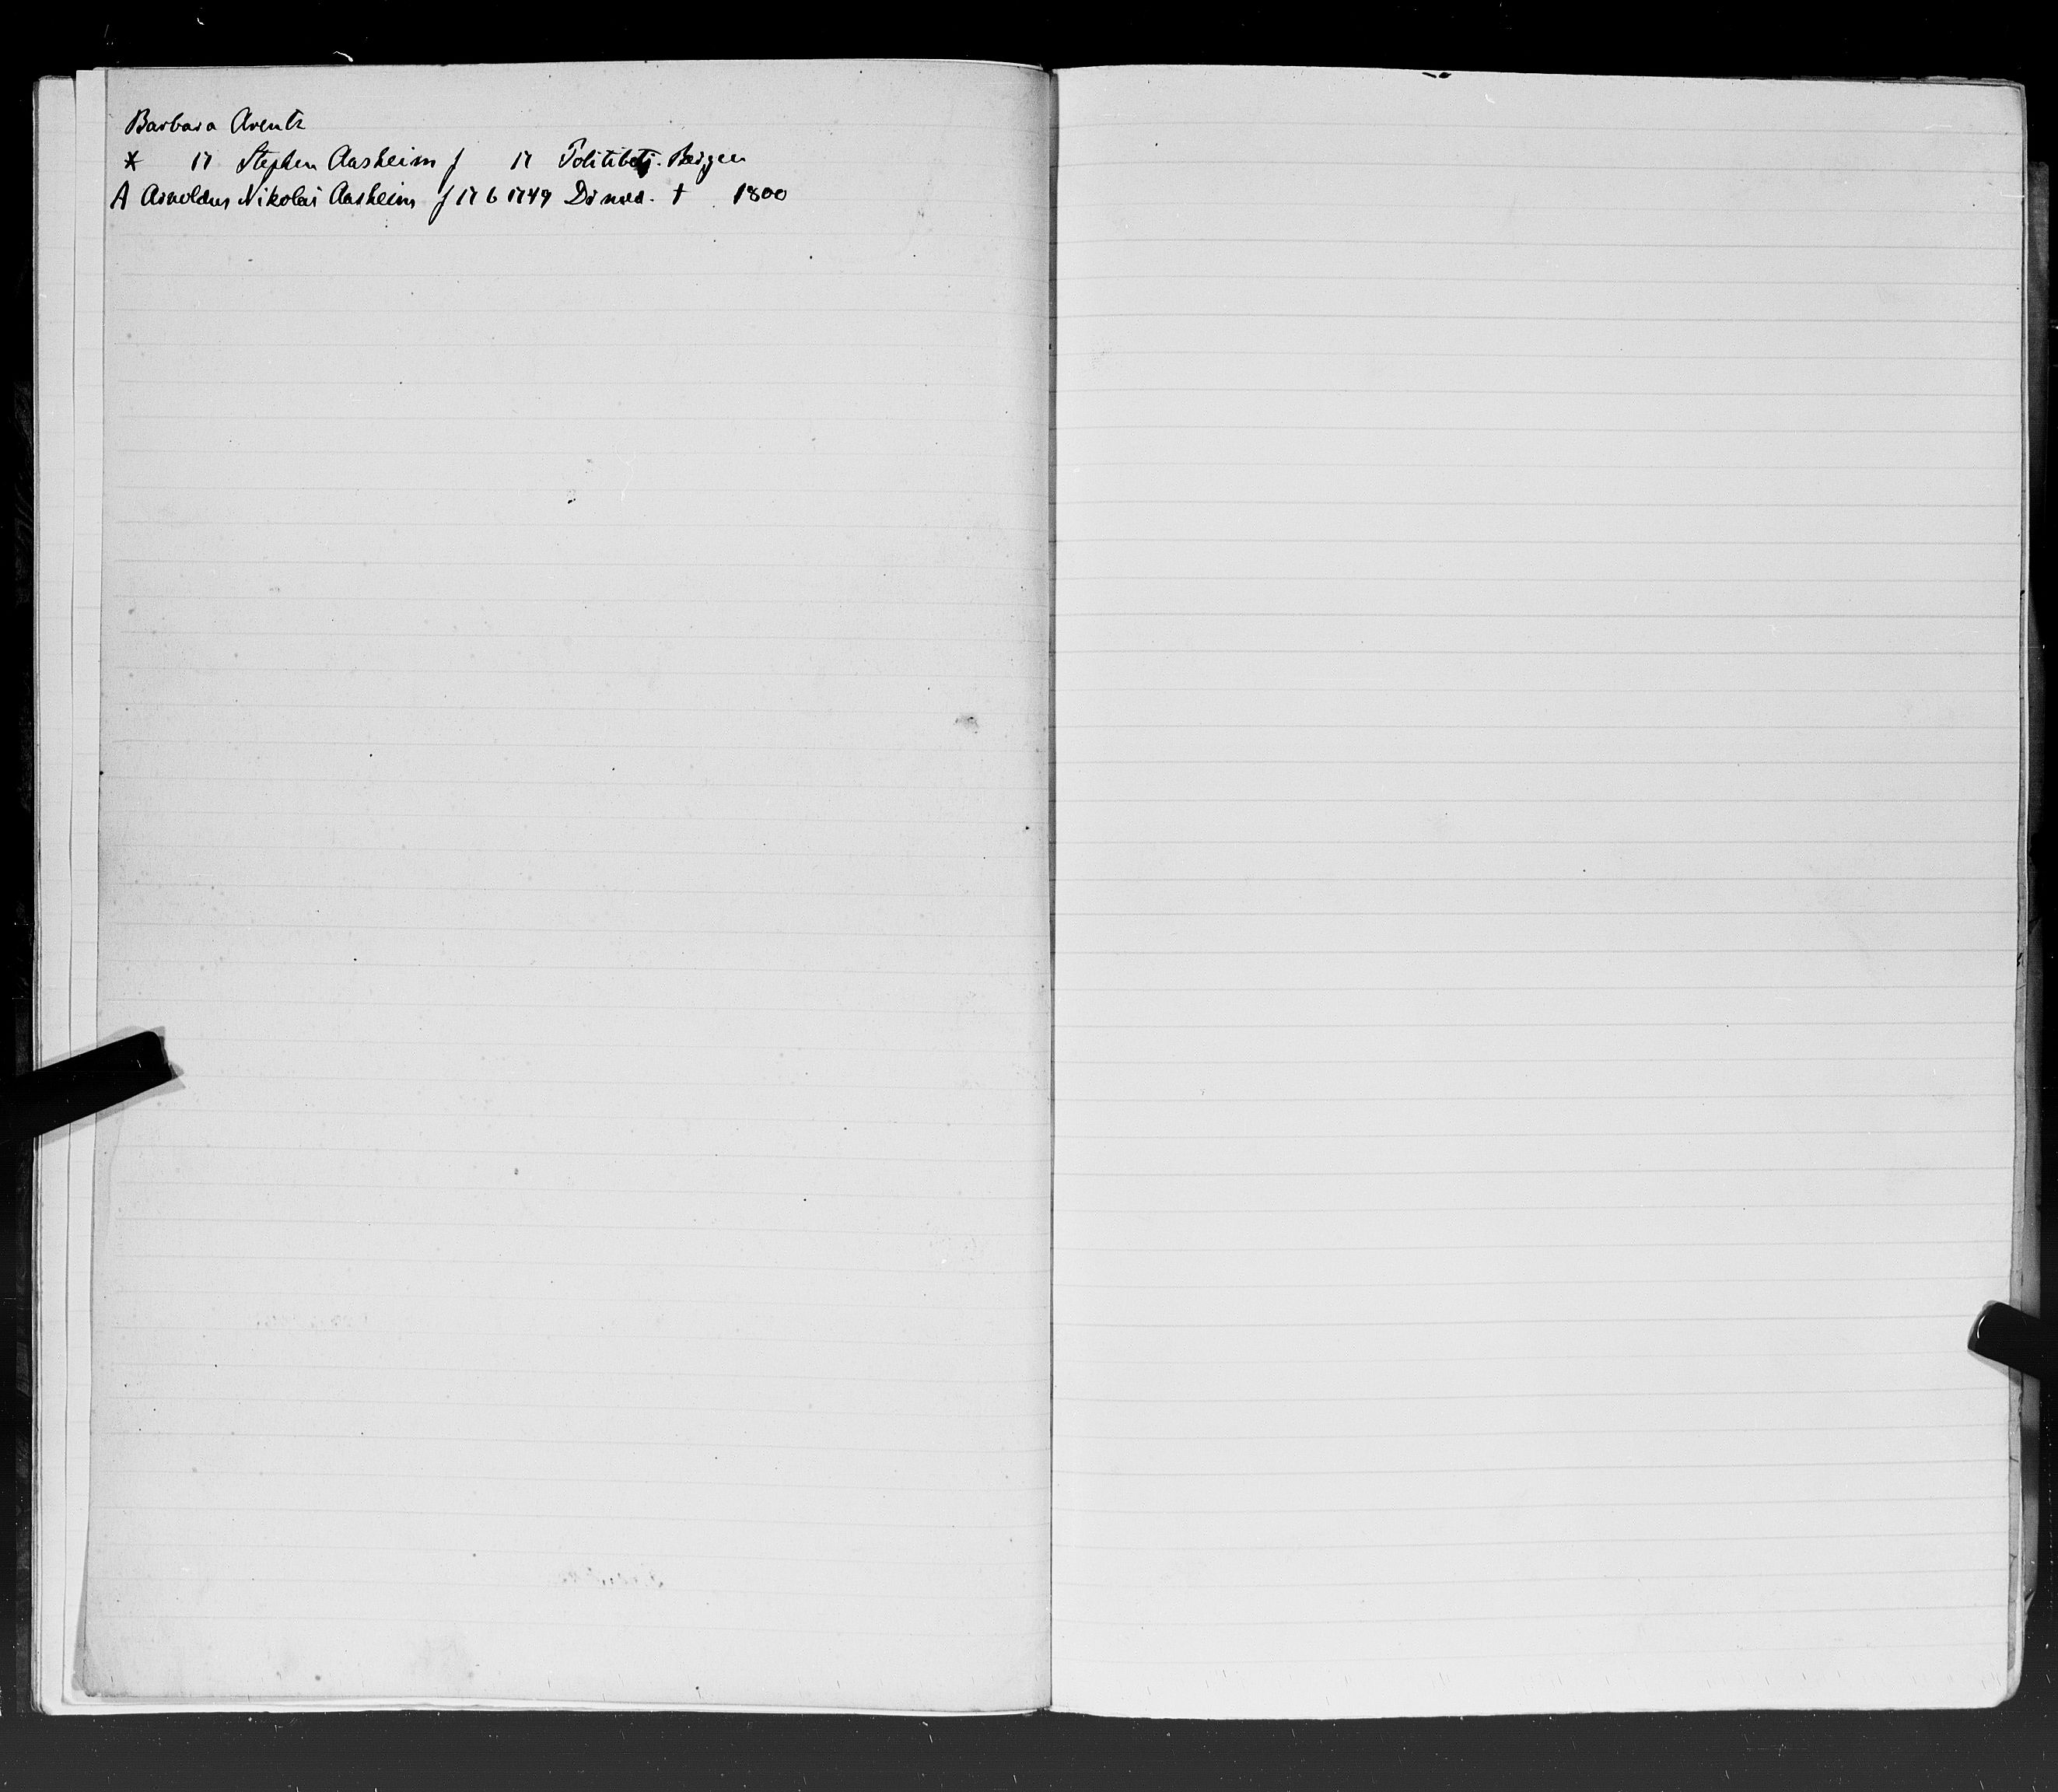 Barbara Arentz
* 17 Stephen Aasheim f 17 Politibetj. Bergen
A Arnoldus Nikolai Aasheim f 17 6 1749 Dr med. † 1800